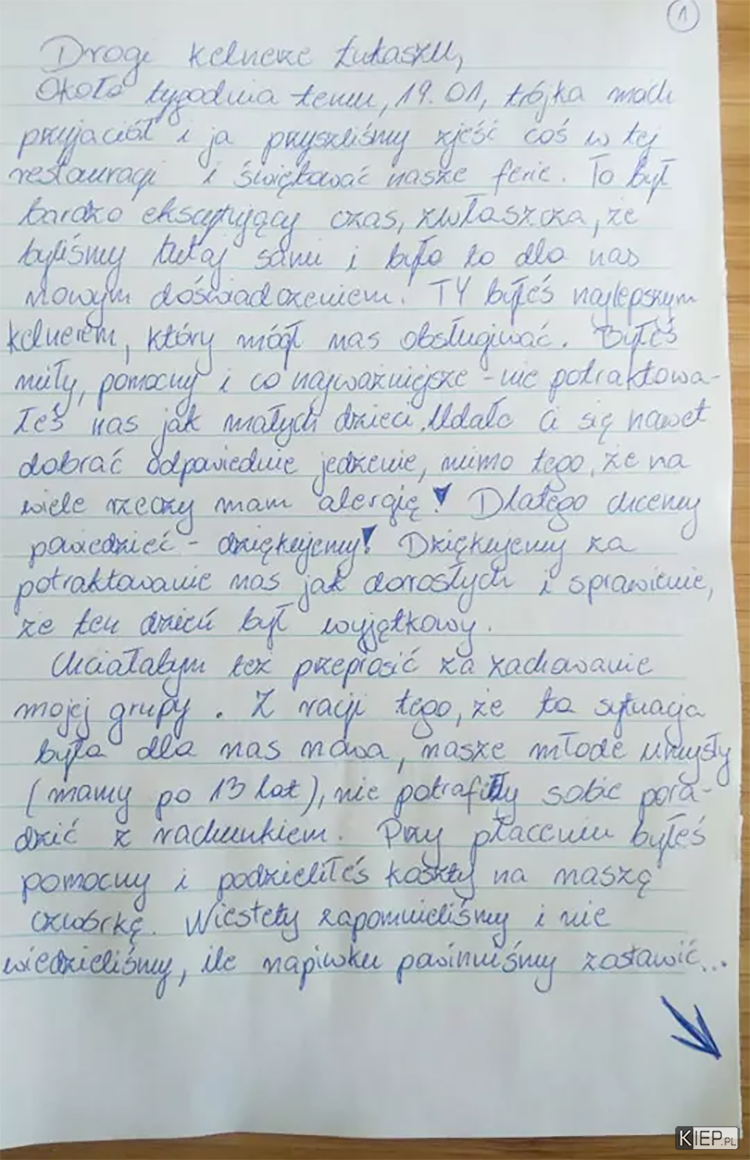 1
Drogi kelnerze Łukaszu,
Około tygodnia temu, 19.01, trójka moich
przyjaciół i ja przyszliśmy zjeść coś w tej
restauracji i świętować nasze ferie. To był
bardzo ekscytujący czas, zwłaszcza, że
byliśmy tutaj sami i było to dla nas
nowym doświadczeniem. TY byłeś najlepszym
kelnerem, który mógł nas obsługiwać. Byłeś
miły, pomocny i co najważniejsze - nie potraktowa-
łeś nas jak małych dzieci. Udało ci się nawet
dobrać odpowiednie jedzenie, mimo tego, że na
wiele rzeczy mam alergię! Dlatego chcemy
powiedzieć - dziękujemy! Dziękujemy za
potraktowanie nas jak dorosłych i sprawienie,
że ten dzień był wyjątkowy.
Chciałabym też przeprosić za zachowanie
mojej grupy. Z racji tego, że ta sytuacja
była dla nas nowa, nasze młode umysły
(mamy po 13 lat), nie potrafiły sobie pora-
dzić z rachunkiem. Przy płaceniu byłeś
pomocny i podzieliłeś koszty na naszą
czwórkę. Niestety zapomnieliśmy i nie
wiedzieliśmy, ile napiwku powinniśmy zostawić...
KIEP.PL